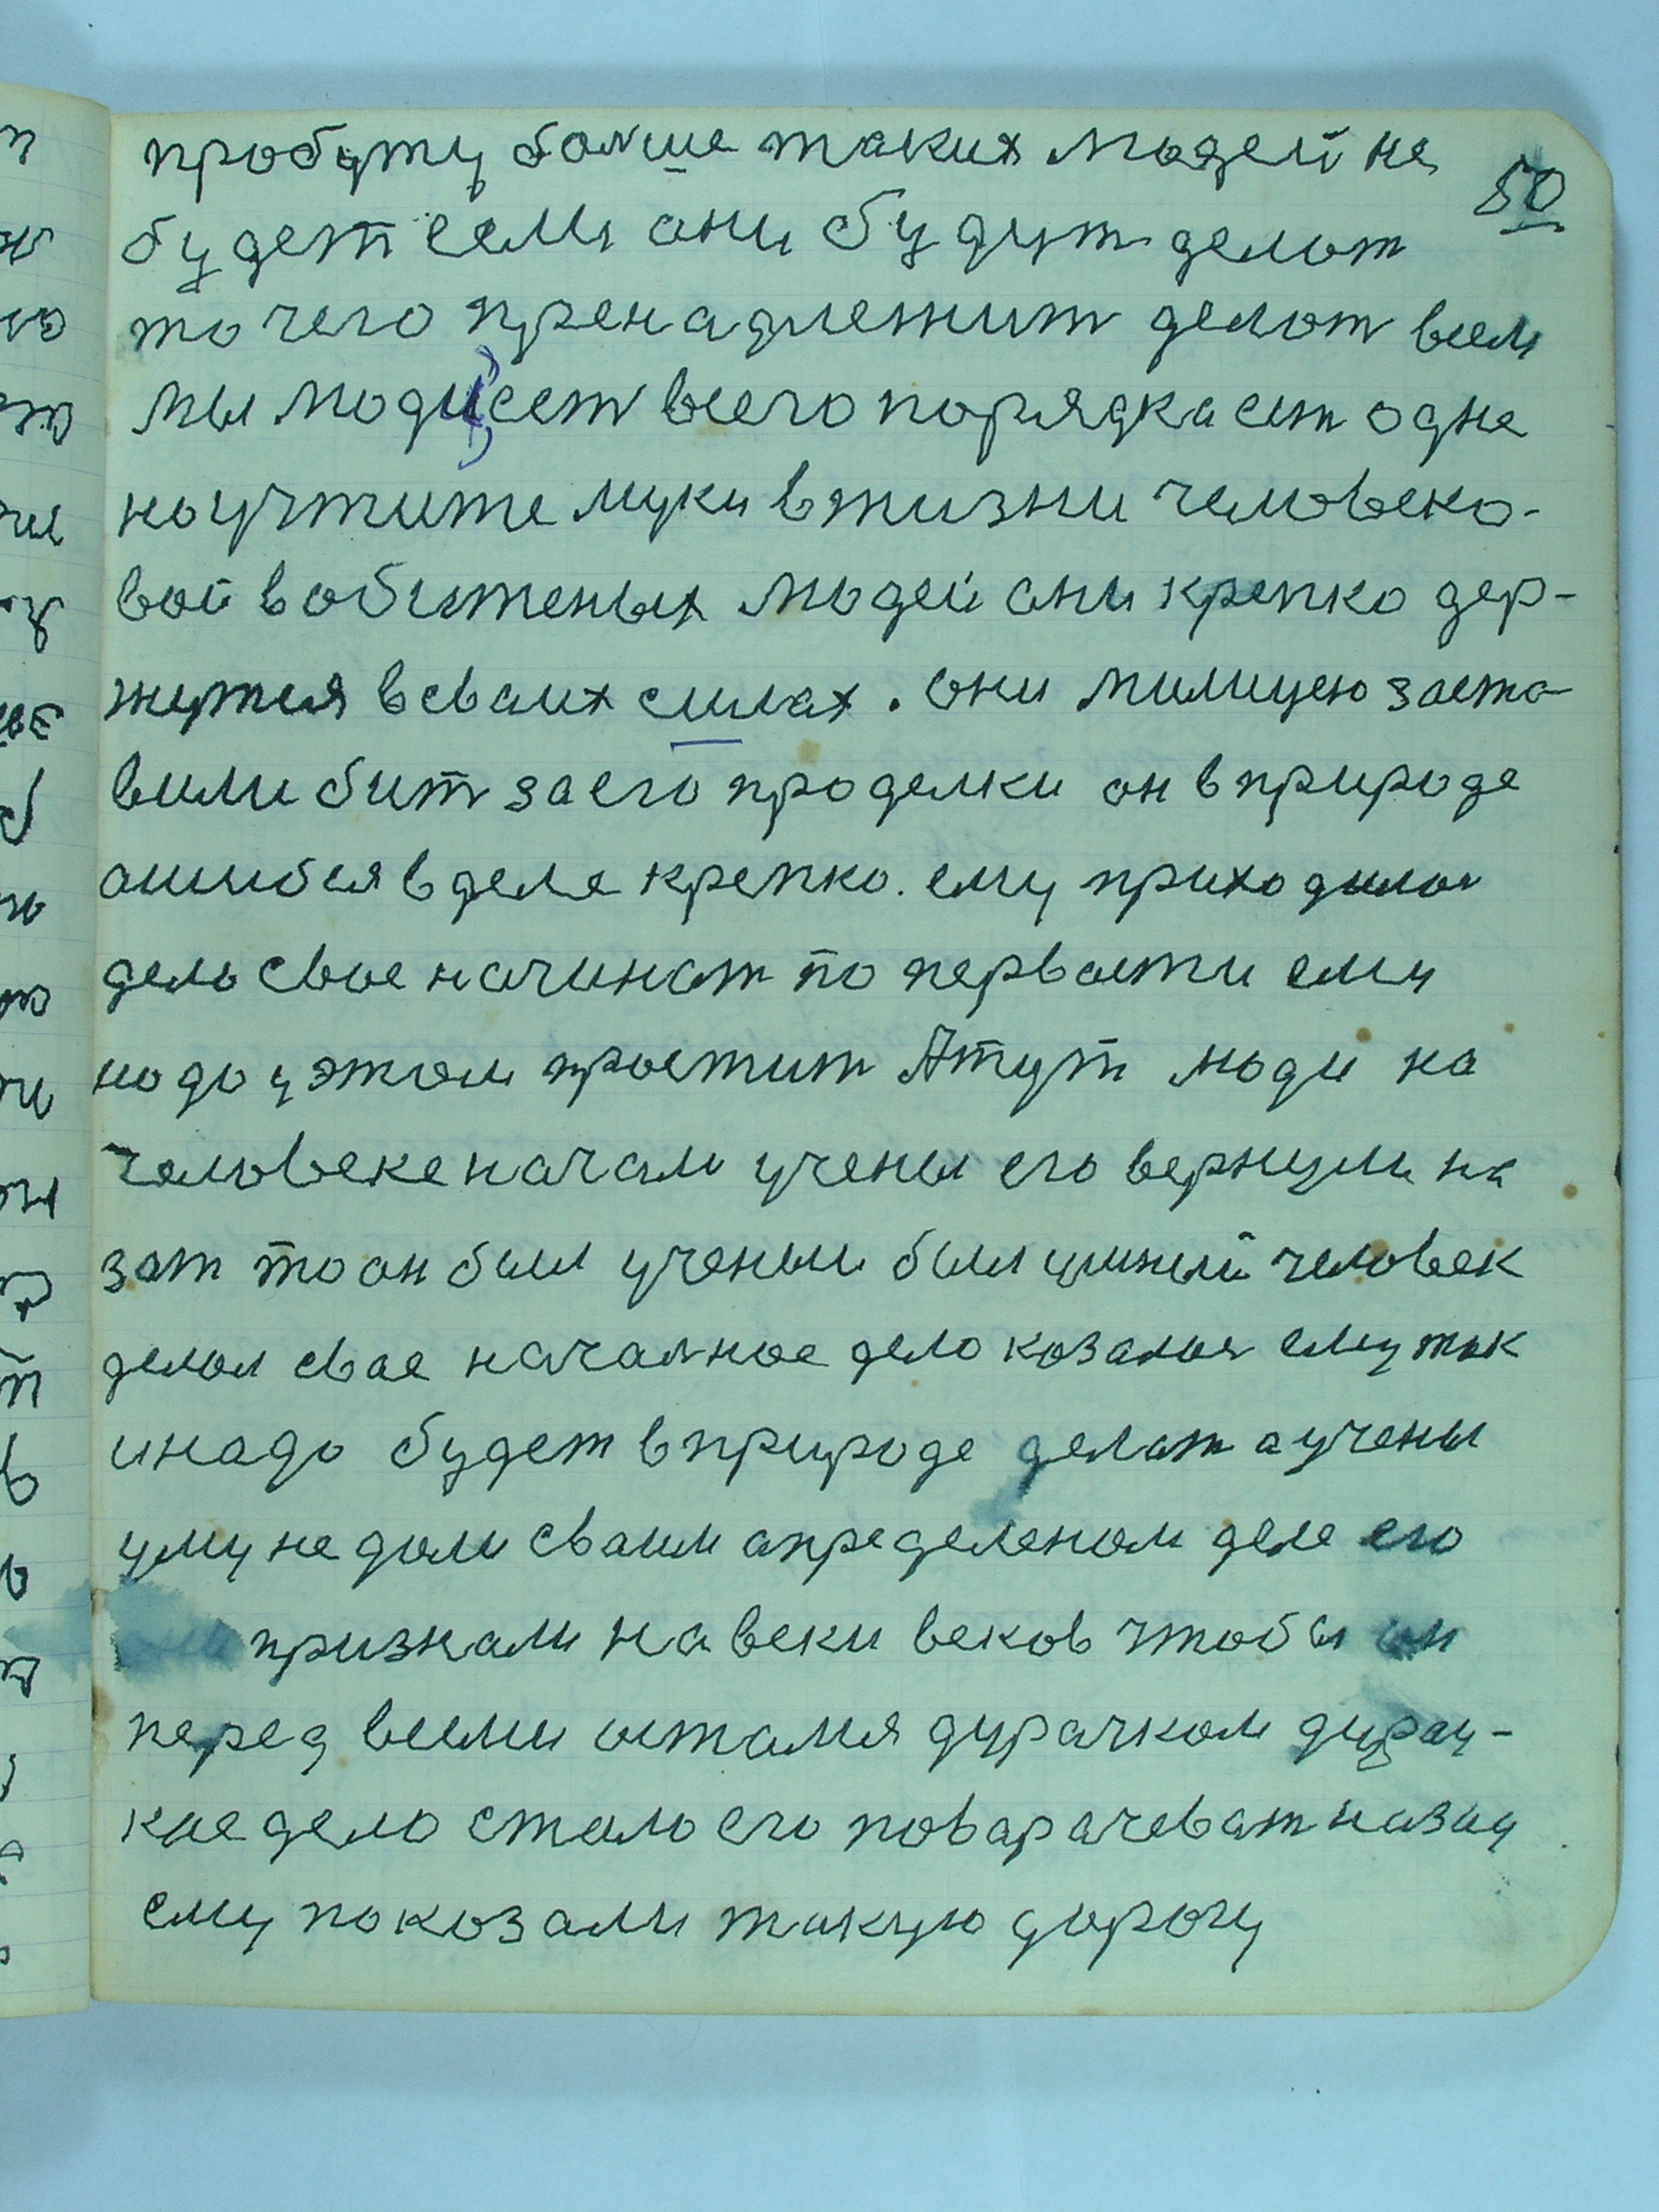 пробуту болше таких людей не
50
будет если они будут делат
то чего пренадлежит делат всем
мы люди сет всего порядка ест одне
ноучтите муки в жизни человеко-
вой в обитеных людей они крепко дер-
жутся в сваих силах. они милицею заста-
вили бит за его проделки он в природе
ошибся в деле крепко. ему приходилос
дело свое начинат по первости ему
надо у этом простит А тут люди на
человеке начали учены его вернули на
зат то он был ученым был умный человек
делал свае началное дело казалос ему так
и надо будет в природе делат а учены
уму не дали сваим определеном деле его
признали на веки веков чтобы он
перед всеми остался дурачком дурац-
кае дело стало его поварачеват назад
ему показали такую дорогу